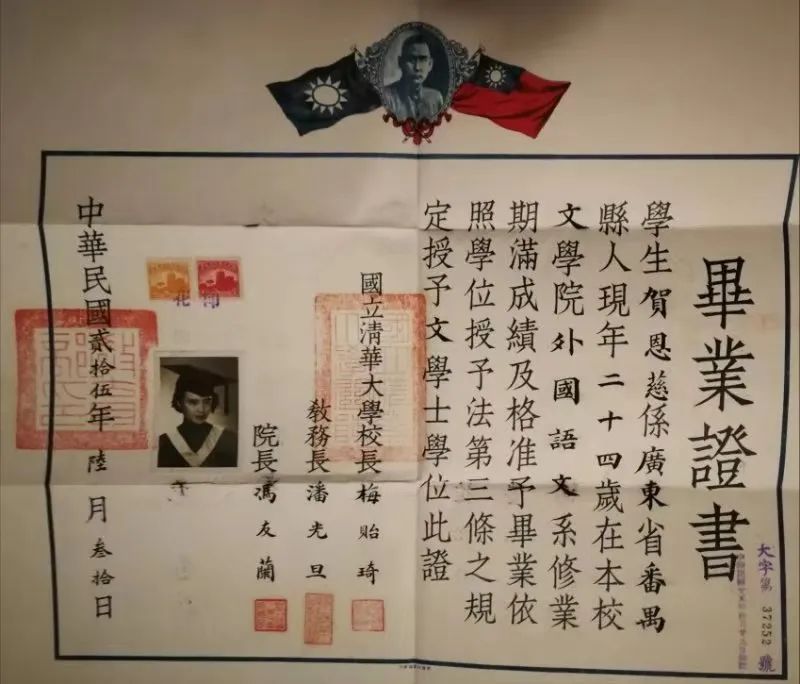 畢業證書
學生賀恩慈係廣東省番禺
縣人現年二十四歲在本校
文學院外國語文系修業
期滿成績及格准予畢業依
照學位授予法第三條之規
定授予文學士學位此證
國立清華大學校長梅貽琦
教務長潘光旦
院長馮友蘭
中華民國貳拾伍年陸月叁拾日
大字第37252號